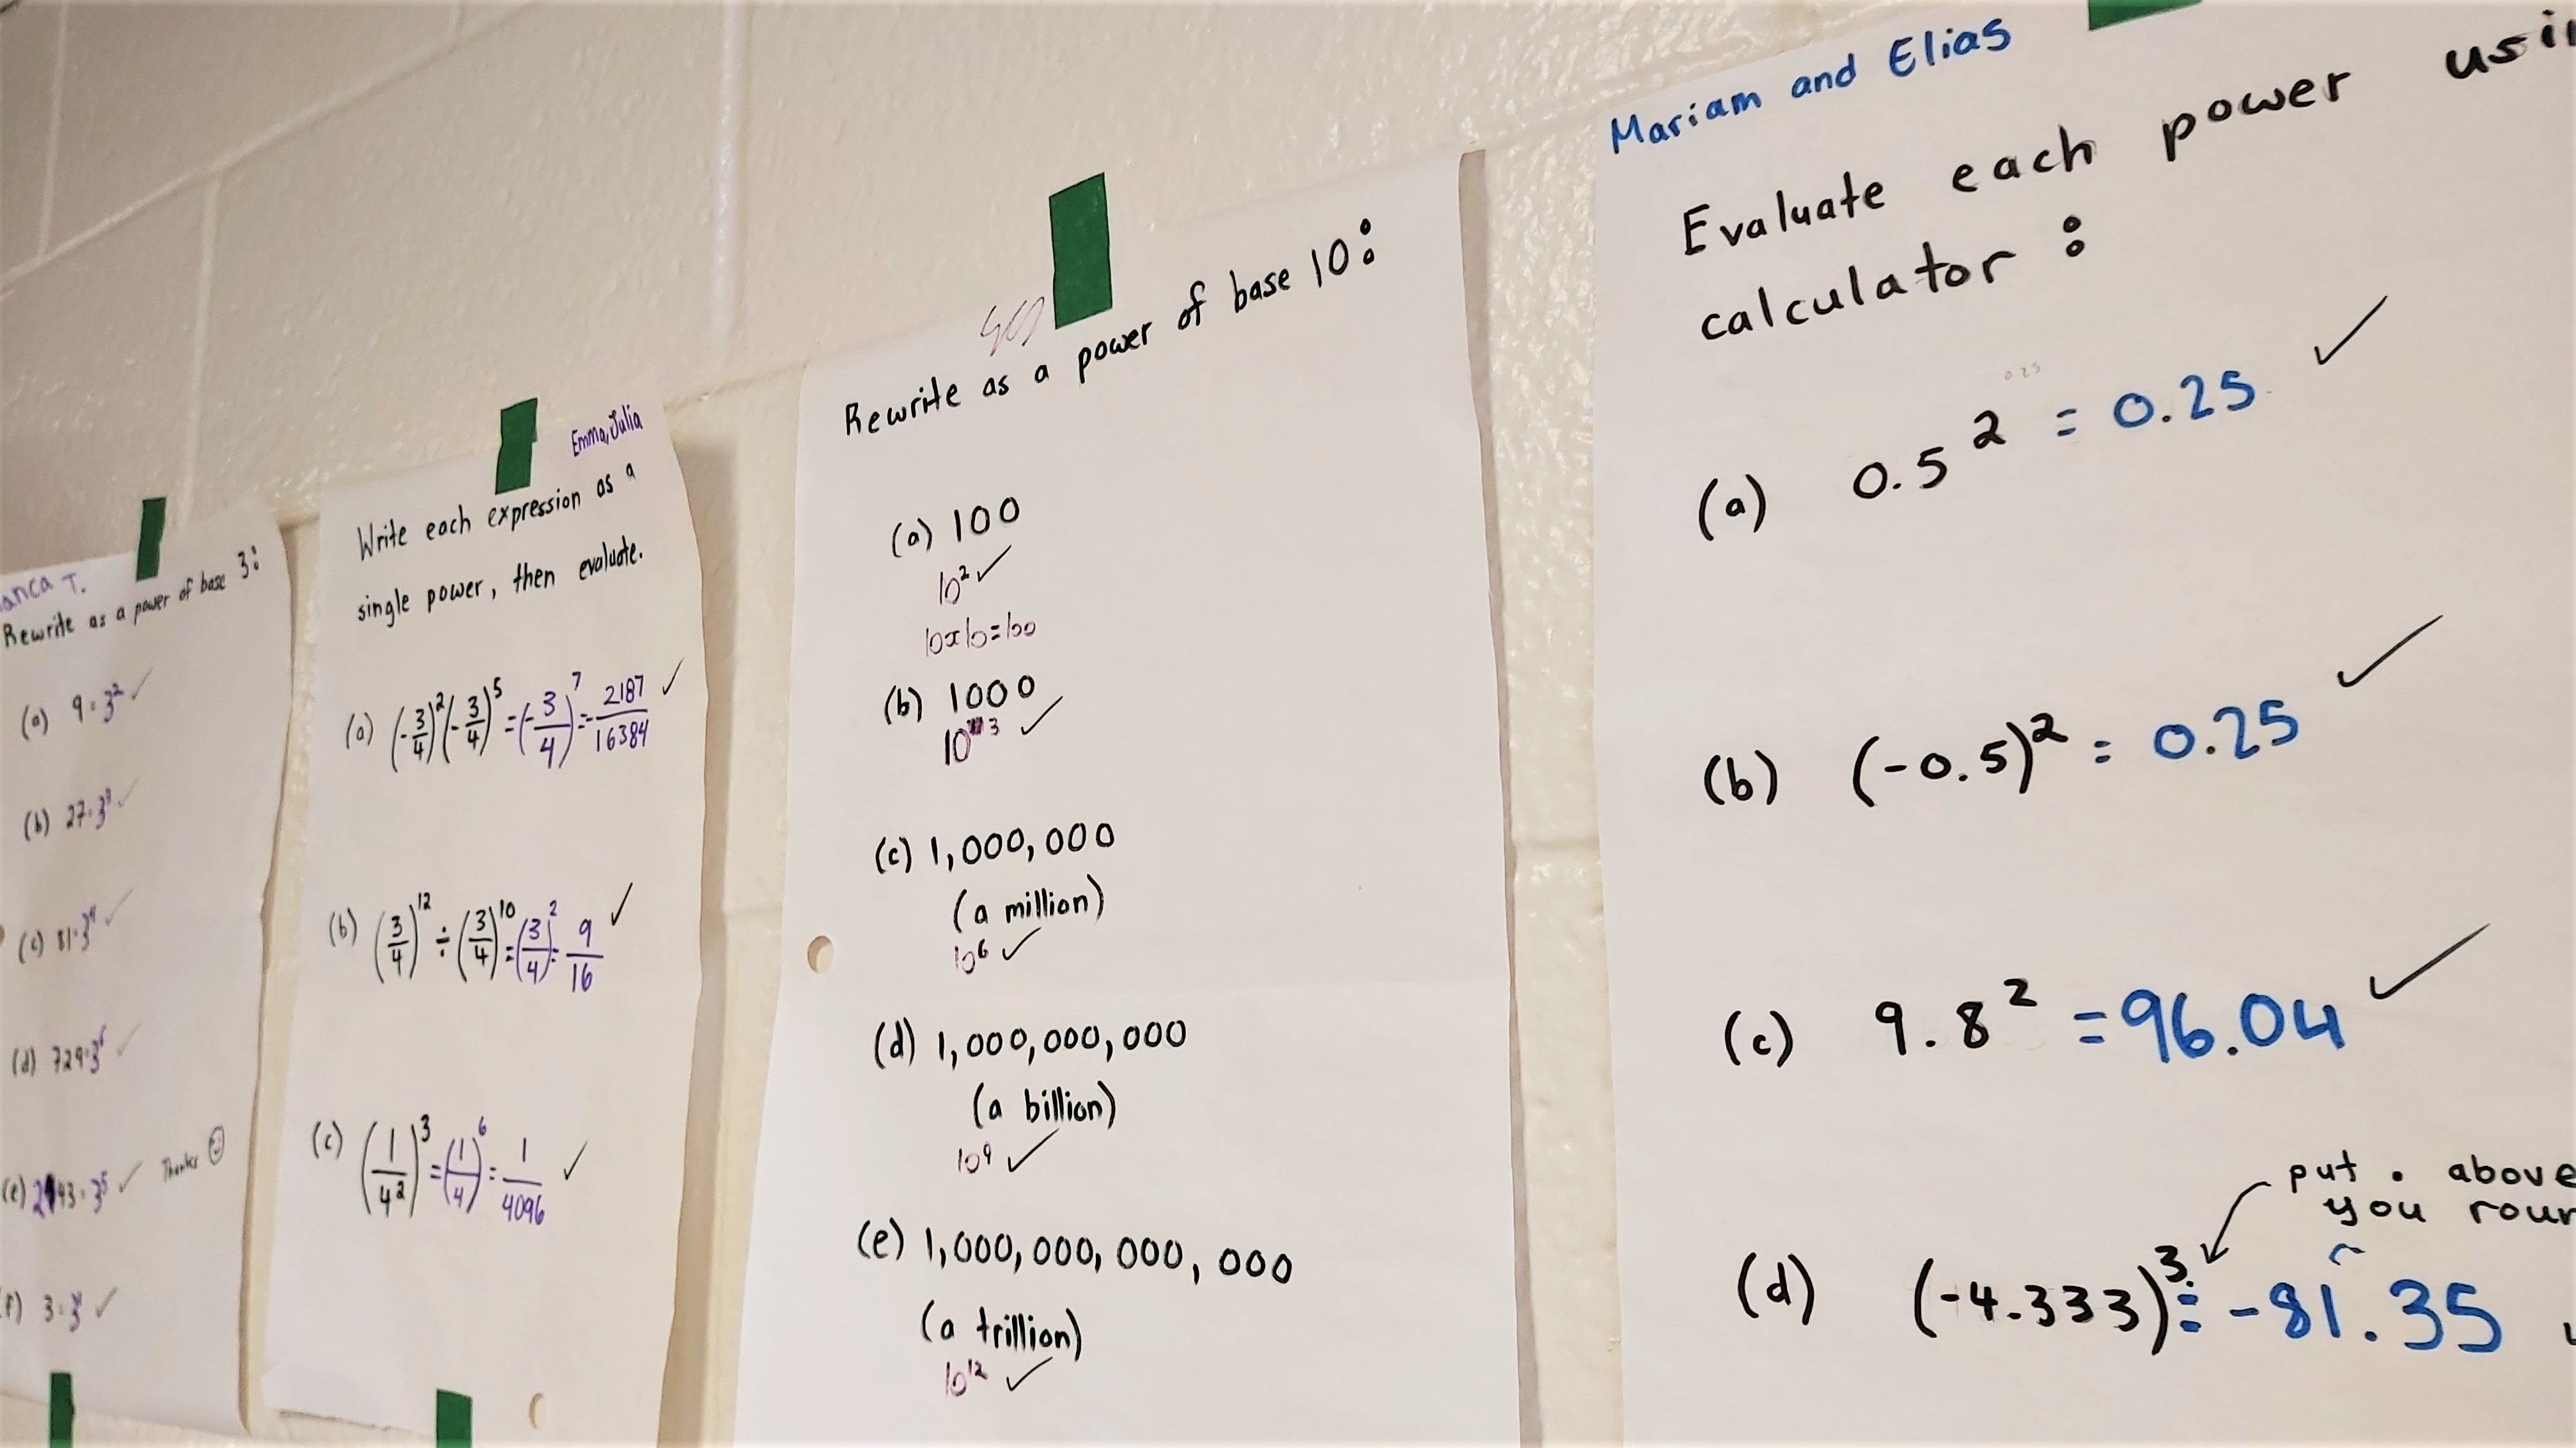 anca T.
Rewrite as a power of base 3:
(a) 9=3²✓
(b) 27=3³✓
(c) 81=3⁴✓
(d) 729=3⁶✓
(e) 243=3⁵✓ Thanks ☺
(f) 3=3 ✓
Emma, Julia
Write each expression as a
single power, then evaluate.
(a) (-3/4)²(-3/4)⁵=(-3/4)⁷=-2187/16384 ✓
(b) (3/4)¹²÷(3/4)¹⁰=(3/4)²=9/16 ✓
(c) (1/4²)³=(1/4)⁶=1/4096 ✓
Rewrite as a power of base 10:
(a) 100
10²✓
10x10=100
(b) 1000
10³ ✓
(c) 1,000,000
(a million)
10⁶ ✓
(d) 1,000,000,000
(a billion)
10⁹ ✓
(e) 1,000,000,000,000
(a trillion)
10¹² ✓
Mariam and Elias
Evaluate each power usin
calculator:
0.25
(a) 0.5² = 0.25 ✓
(b) (-0.5)² = 0.25 ✓
(c) 9.8² = 96.04 ✓
put . above
you roun
(d) (-4.333)³ ≐ -81.35